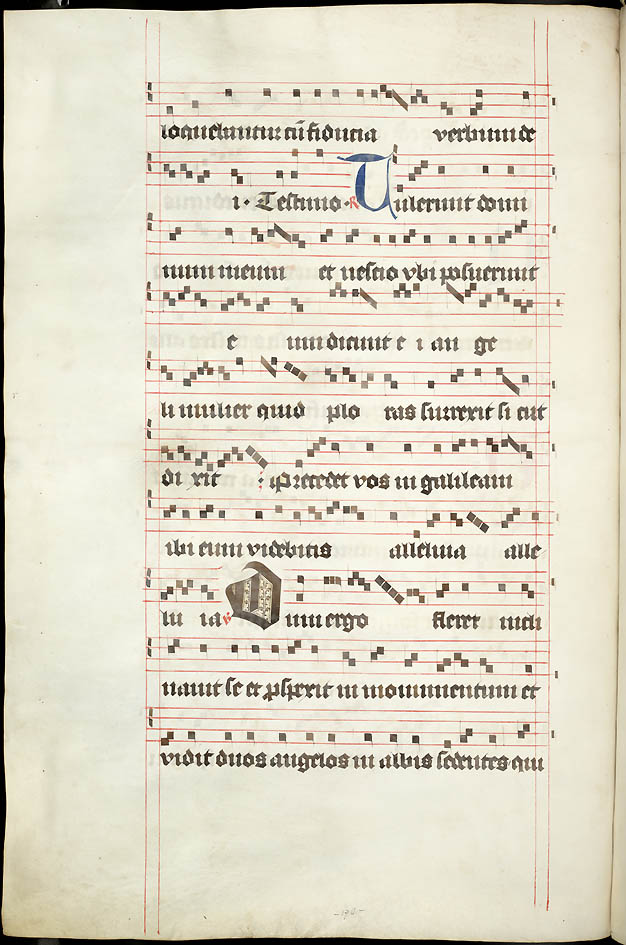 loquebantur cū fiducia verbum de
i · Testimo · R Tulerunt domi
num meum et nescio vbi posuerunt
e um dicunt e i an ge
li mulier quid plo ras surrexit si cut
di xit : Precedet vos in galileam
ibi eum videbitis alleluia alle
lu ia V Cum ergo fleret incli
nauit se et ꝑspexit in monumentum et
vidit duos angelos in albis sedentes qui